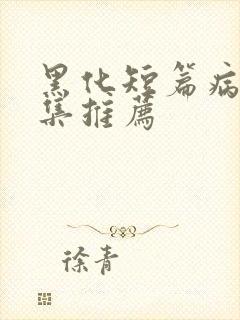 黑化短篇病
集推薦
徐青